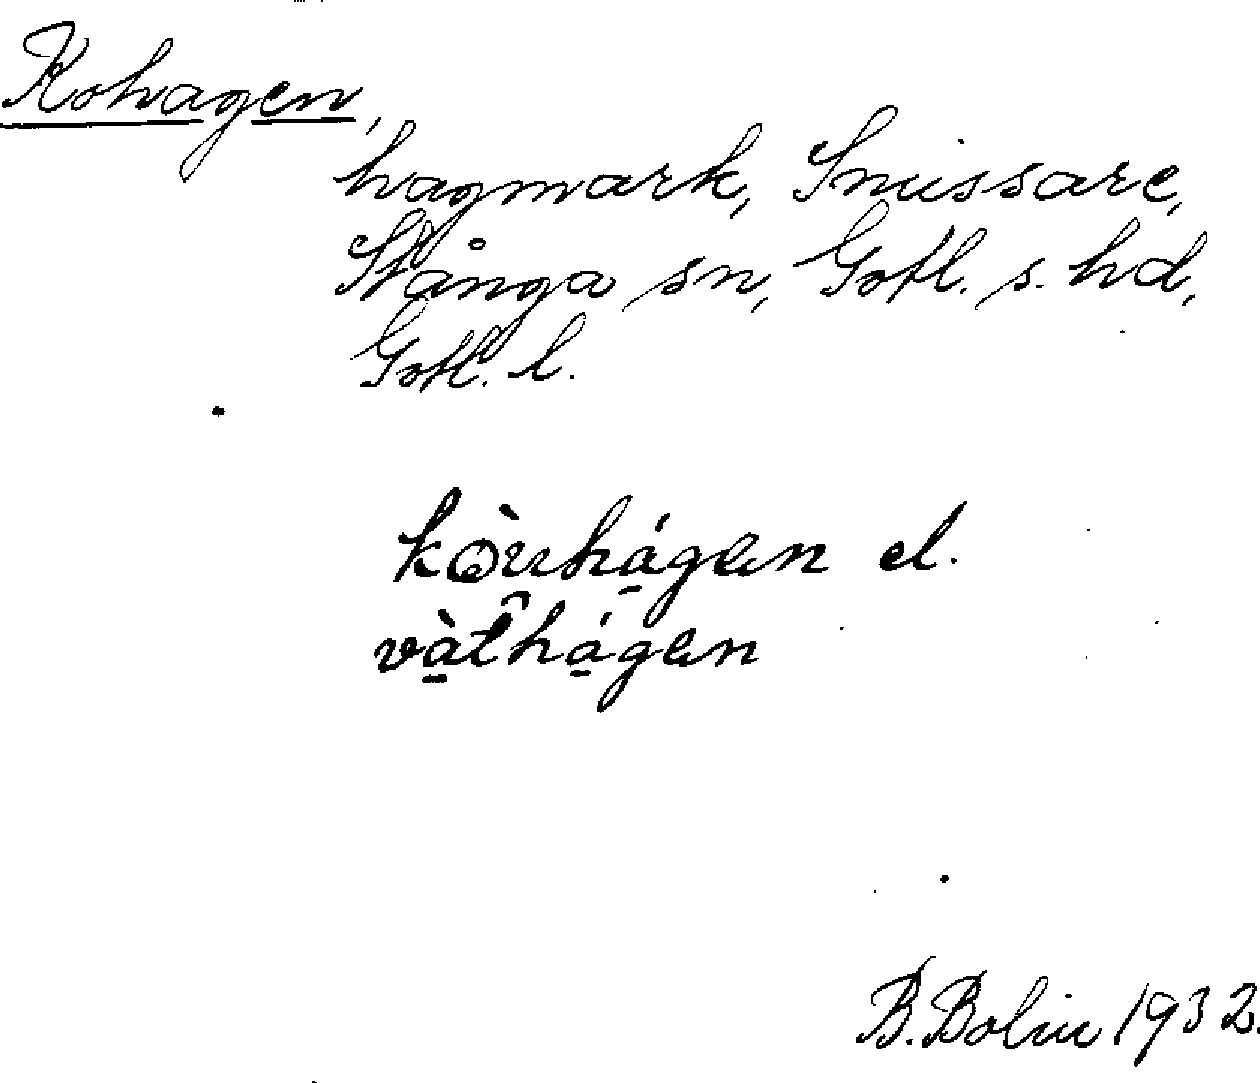 Kohagen,
hagmark, Snissare,
Stånga sn, Gotl. s. hd,
Gotl. l.
kòuhágen el.
vàthágen
B. Bolin 1932.